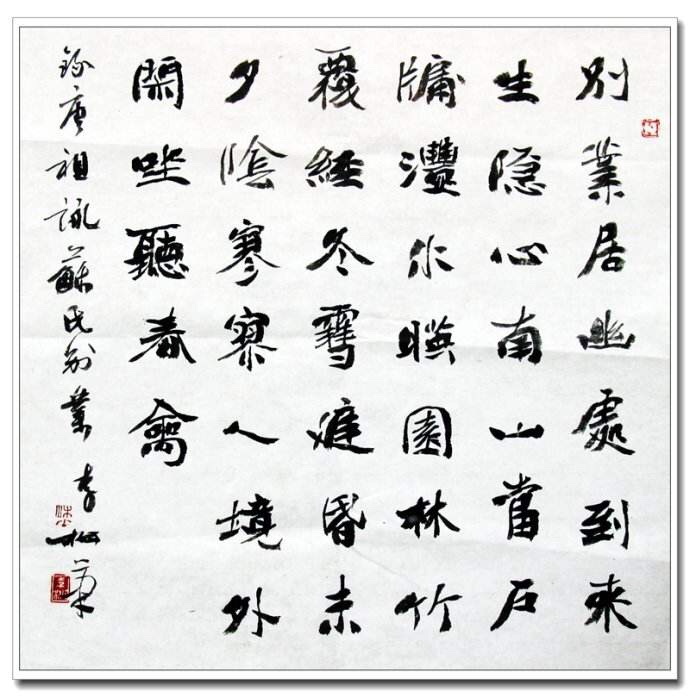 别業居幽處到来
生隐心南山當户
牖灃水暎園林竹
覆經冬雪庭昏未
夕陰寥寥人境外
閑坐聽春禽
錄唐祖詠蘇氏别業 李